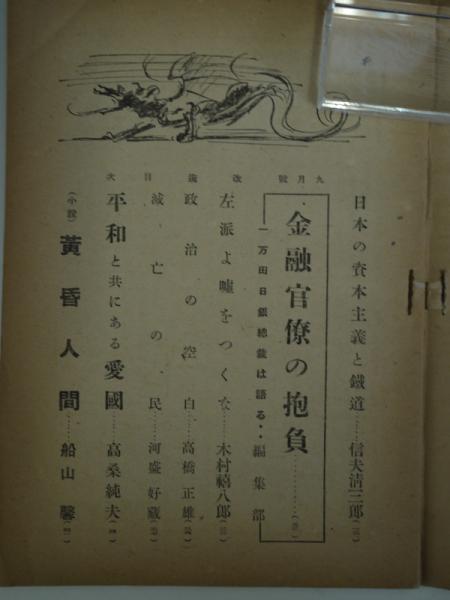 九月號 改造 目次
日本の資本主義と鐵道……信夫淸三郎
金融官僚の抱負…………
一万田日銀總裁は語る‥編集部
左派よ嘘をつくな……木村禧八郎
政治の空白……高橋正雄
滅亡の民……河盛好蔵
平和と共にある愛國……高桑純夫
(小說)黃昏人間……船山馨